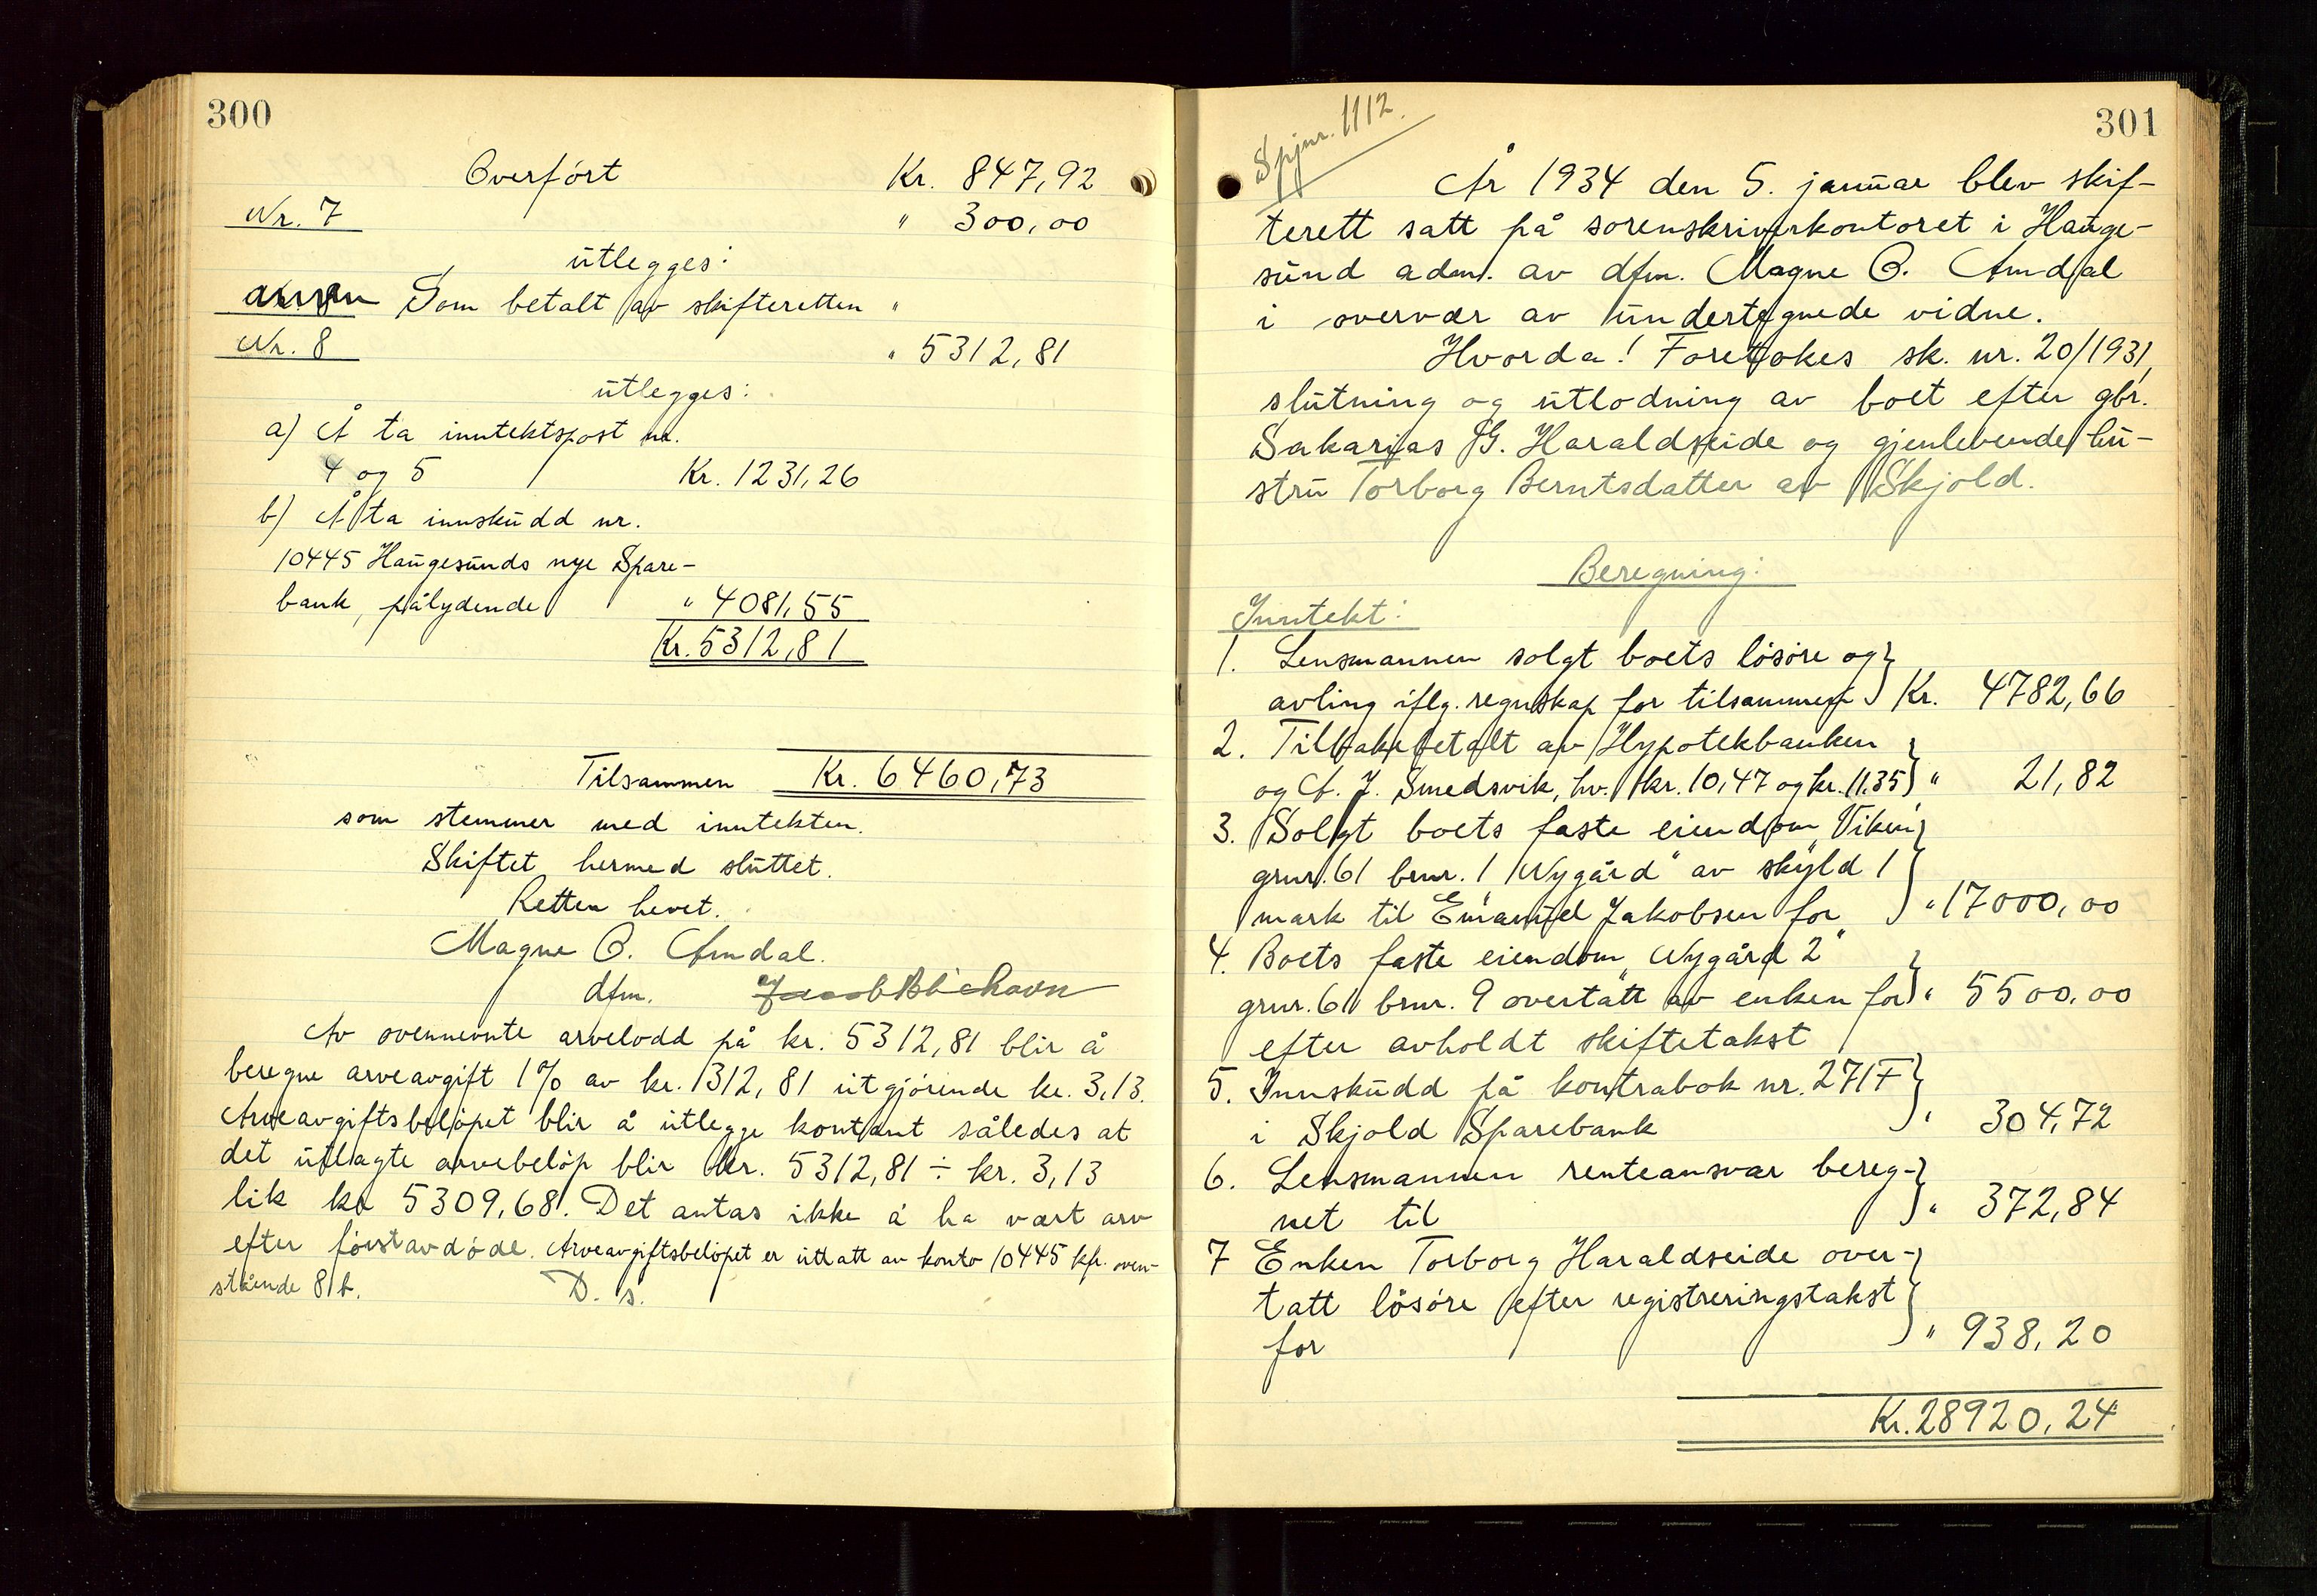 300
Overført Kr. 847,92
Nr. 7 " 300,00
utlegges:
Som betalt av skifteretten "
Nr. 8 " 5312,81
utlegges:
a) Å ta inntektspost nr.
4 og 5 Kr. 1231,26
b) Å ta innskudd nr.
10445 Haugesunds nye Spare-
bank, pålydende " 4081,55
Kr. 5312,81
Tilsammen Kr. 6460,73
som stemmer med inntekten.
Skiftet hermed sluttet.
Retten hevet.
Magne O. Amdal.
dfm.
Av ovennevnte arvelodd på kr. 5312,81 blir å
beregne arveavgift 1% av kr. 1312,81 utgjørende kr. 3,13.
Arveavgiftsbeløpet blir å utlegge kontant således at
det utlagte arvebeløp blir kr. 5312,81 ÷ kr. 3,13
lik kr 5309,68. Det antas ikke å ha vært arv
efter førstavdøde. Arveavgiftsbeløpet er uttatt av konto 10445 kfr. oven-
stående 8 b.
D. s.
301
Spjnr. 1112.
År 1934 den 5. januar blev skif-
terett satt på sorenskriverkontoret i Hauge-
sund adm. av dfm. Magne O. Amdal
i overvær av undertegnede vidne.
Hvorda! Foretokes sk. nr. 20/1931,
slutning og utlodning av boet efter gbr.
Sakarias G. Haraldseide og gjenlevende hu-
stru Torborg Berntsdatter av Skjold.
Beregning:
Inntekt:
1. Lensmannen solgt boets løsøre og
avling iflg. regnskap for tilsammen Kr. 4782,66
2. Tilbakebetalt av Hypotekbanken
og A. J. Smedsvik, hv. kr. 10,47 og kr. 11.35 " 21,82
3. Solgt boets faste eiendom Viken,
grnr. 61 brnr. 1 "Nygård" av skyld 1
mark til Emanuel Jakobsen for " 17000,00
4. Boets faste eiendom "Nygård 2"
grnr. 61 brnr. 9 overtatt av enken for " 5500,00
efter avholdt skiftetakst
5. Innskudd på kontrabok nr. 271F
i Skjold Sparebank " 304,72
6. Lensmannen renteansvar bereg-
net til " 372,84
7 Enken Torborg Haraldseide over-
tatt løsøre efter registreringstakst
for " 938,20
Kr. 28920,24